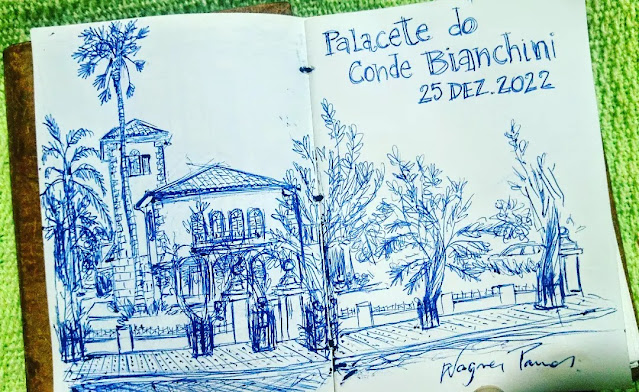 Palacete do
Conde Bianchini
25 DEZ. 2022
Wagner